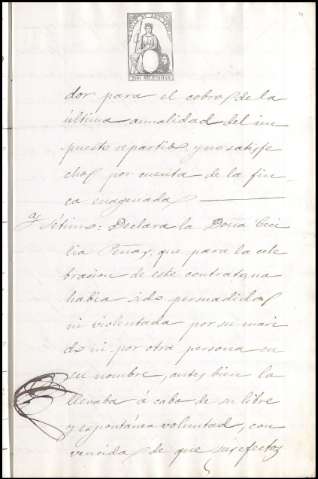 dor para el cobro de la
última anualidad del im
puesto repartido y no satisfe
cho, por cuenta de la fin
ca enagenada
Y Sétimo: Declara la Doña Ceci
lia Peña, que para la cele
bracion de este contrato, no
habia sido persuadida
ni violentada por su mari
do ni por otra persona en
su nombre, antes bien la
llevaba á cabo de su libre
y espontánea voluntad, con
vencida de que sus efectos